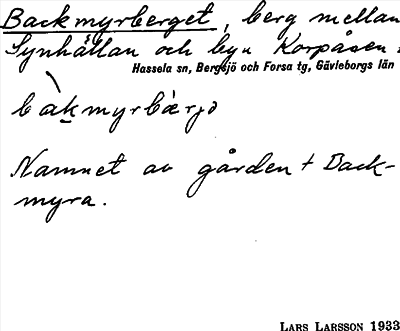 Backmyrberget, berg mellan
Synhållan och byn Korpåsen.
Hassela sn, Bergsjö och Forsa tg, Gävleborgs län
Namnet av gården † Back-
myra.
LARS LARSSON 1933